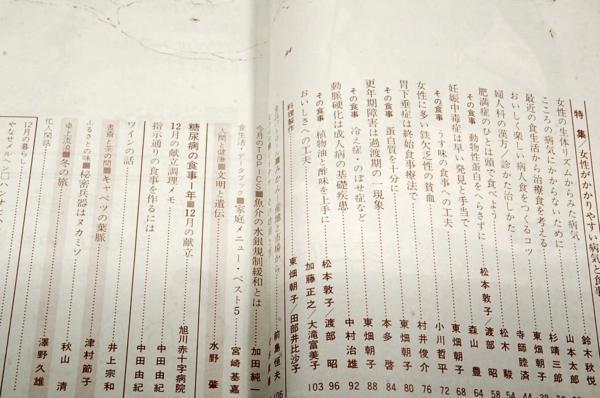 特集/女性がかかりやすい病気と食事
女性の生体リズムからみた病気 鈴木秋悦
こころの病気にかからないために 山本太郎
最近の食生活から治療食を考える 杉靖三郎
おいしく楽しい病人食をつくるコツ 東畑朝子
婦人科の漢方/診かた治しかた 寺師睦済 54
肥満症のひとは頭で食べよう 松木駿 58
その食事 動物性蛋白をへらさずに 松本敦子/渡部昭 64
妊娠中毒症は早い発見と手当で 森山豊 68
その食事 うす味の食事への工夫 東畑朝子 68
女性に多い鉄欠乏性の貧血 小川哲平 72
胃下垂症は終始食事療法で 村井俊介 76
その食事 蛋白質を十分に 東畑朝子 80
更年期障害は過渡期の一現象 本多啓 84
その食事 冷え症・のぼせ症など 東畑朝子 88
動脈硬化は成人病の基礎疾患 中村治雄 92
その食事 植物油と酢味を上手に 松本敦子/渡部昭 96
おいしさへの工夫 加藤正之/大滝富美子 103
料理製作 東畑朝子・田部井比沙子
今月のTOPICS■魚介の水銀規制緩和とは 加田純一
食生活・データブック■家庭メニュー・ベスト5 宮崎基嘉
人間と健康■文明と遺伝 水野肇
糖尿病の食事1年■12月の献立 旭川赤十字病院
12月の献立調理メモ 中田由紀
指示通りの食事を作るには 中田由紀
ワインの話 井上宗和
書斎と茶の間■キャベツの葉脈 津村節子
ふるさとの味■秘密兵器はヌカミソ 秋山清
ゆ・ま・湯■冬の旅 澤野久雄
忙人閑話
12月の暮らし
やなせメルヘン